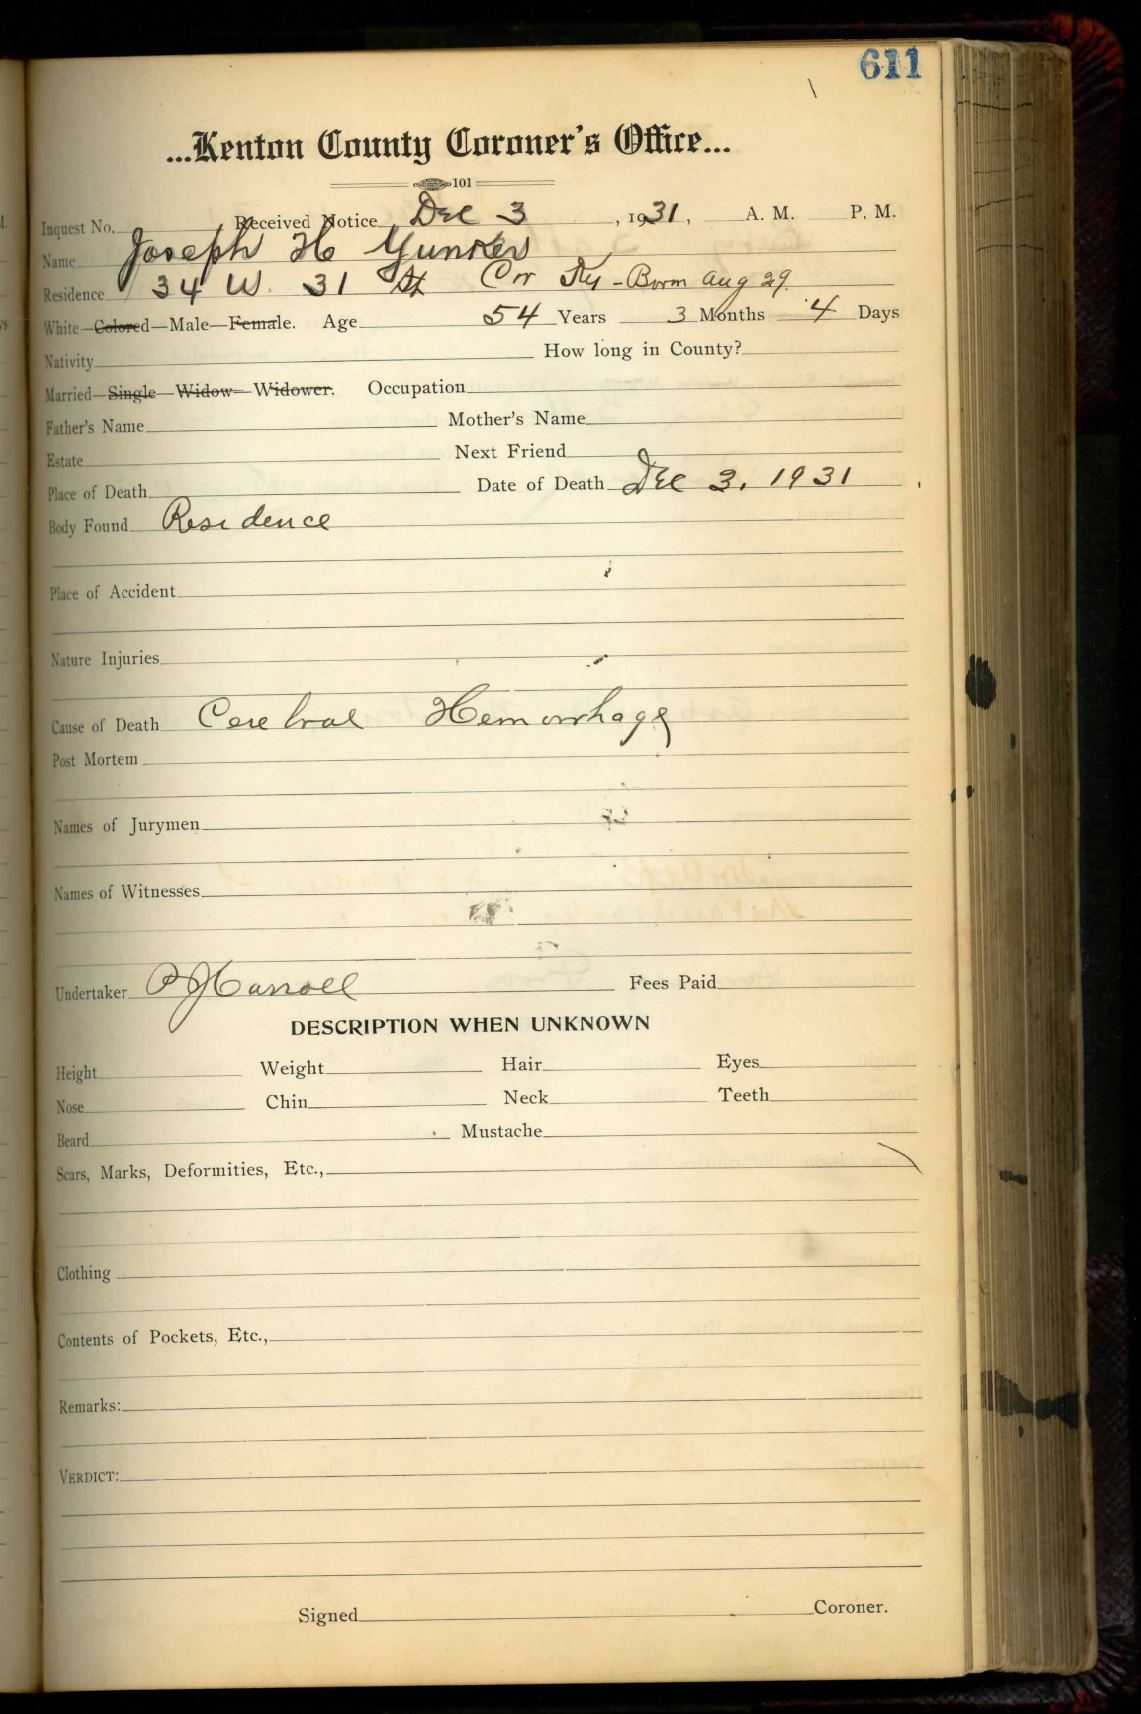 611
...Kenton County Coroner's Office...
101
Inquest No. Received Notice Dec 3, 1931, A. M. P. M.
Name Joseph H Yunker
Residence 34 W. 31 St Cov Ky - Born Aug 29.
White—Colored—Male—Female. Age 54 Years 3 Months 4 Days
Nativity How long in County?
Married—Single—Widow—Widower. Occupation
Father's Name Mother's Name
Estate Next Friend
Place of Death Date of Death Dec 3, 1931
Body Found Residence
Place of Accident
Nature Injuries
Cause of Death Cerebral Hemorrhage
Post Mortem
Names of Jurymen
Names of Witnesses
Undertaker P J Carroll Fees Paid
DESCRIPTION WHEN UNKNOWN
Height Weight Hair Eyes
Nose Chin Neck Teeth
Beard Mustache
Scars, Marks, Deformities, Etc.,
Clothing
Contents of Pockets, Etc.,
Remarks:
VERDICT:
Signed Coroner.